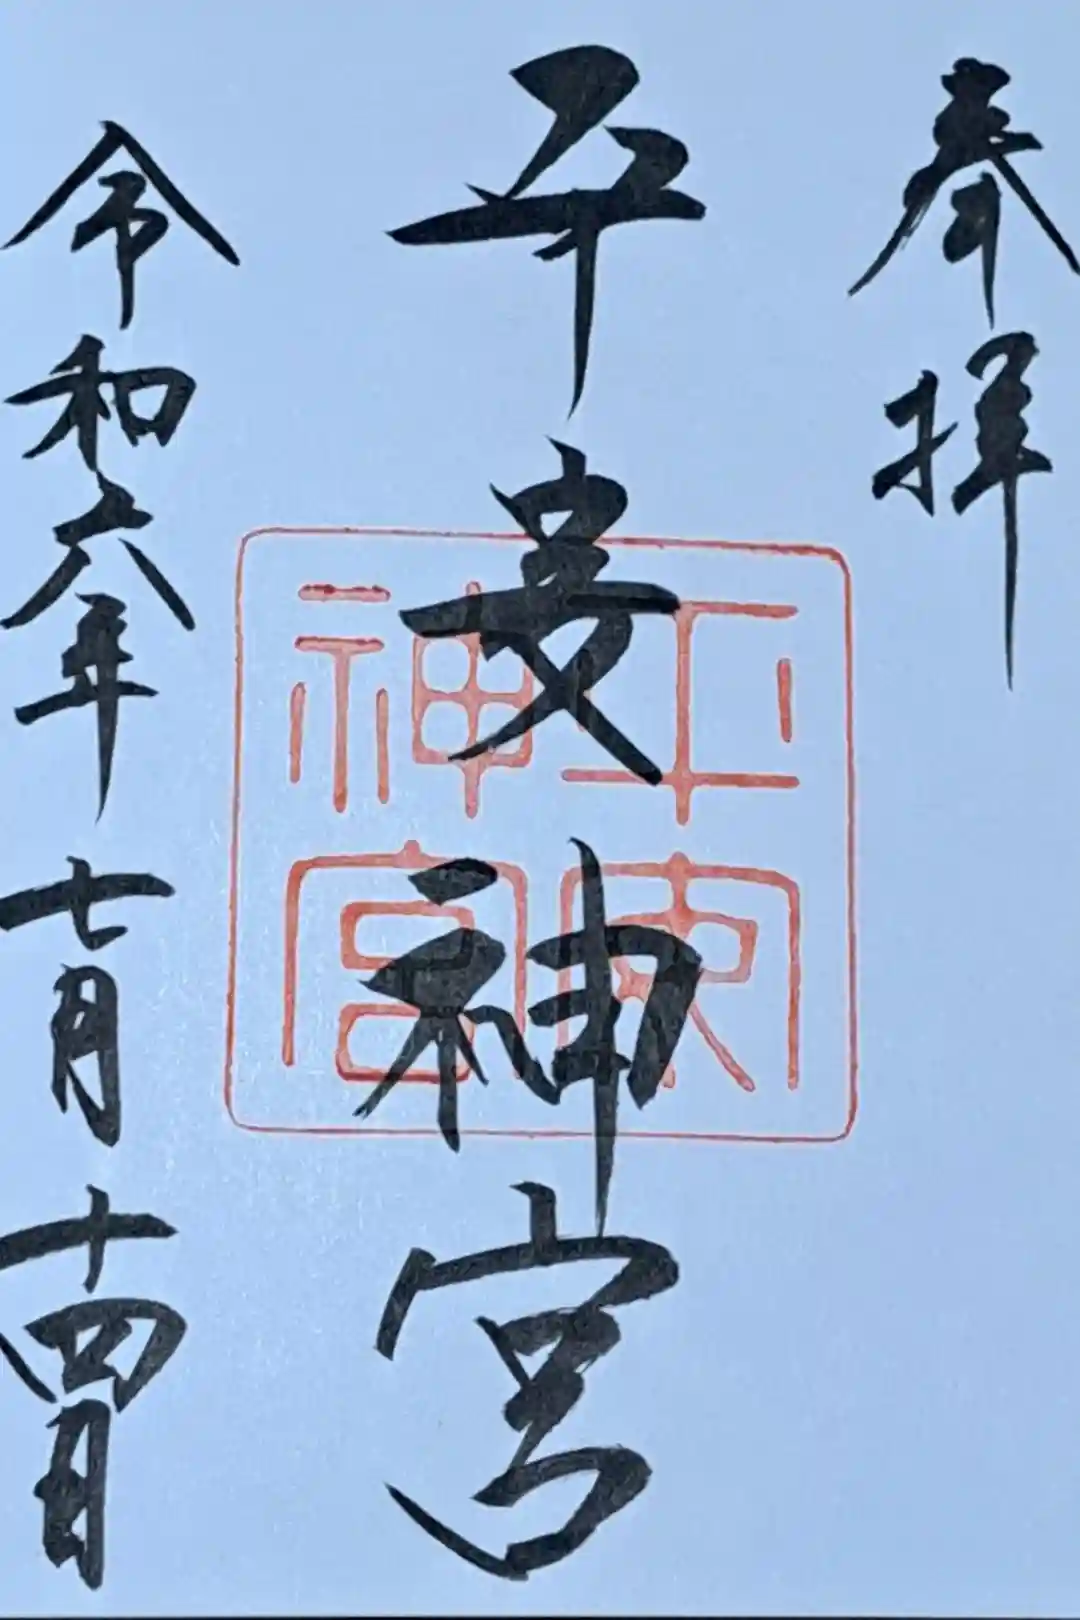 奉拝
平安神宮
令和六年七月十四日
平安
神宮